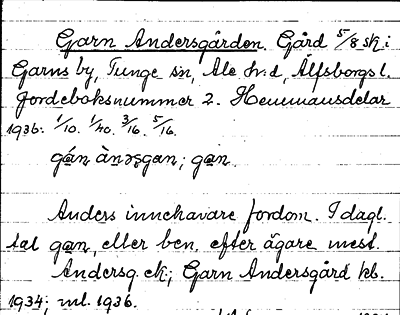 Garn Andersgården. Gård 5/8 sk. i
Garns by, Tunge sn, Ale hd, Älfsborgs l.
Jordeboksnummer 2. Hemmansdelar
1936: 1/10. 1/40. 3/16. 5/16.
gán ànəsgan; gan.
Anders innehavare fordom. I dagl.
tal gan, eller ben. efter ägare mest.
Andersg. ek.; Garn Andersgård kb.
1934; ml. 1936.